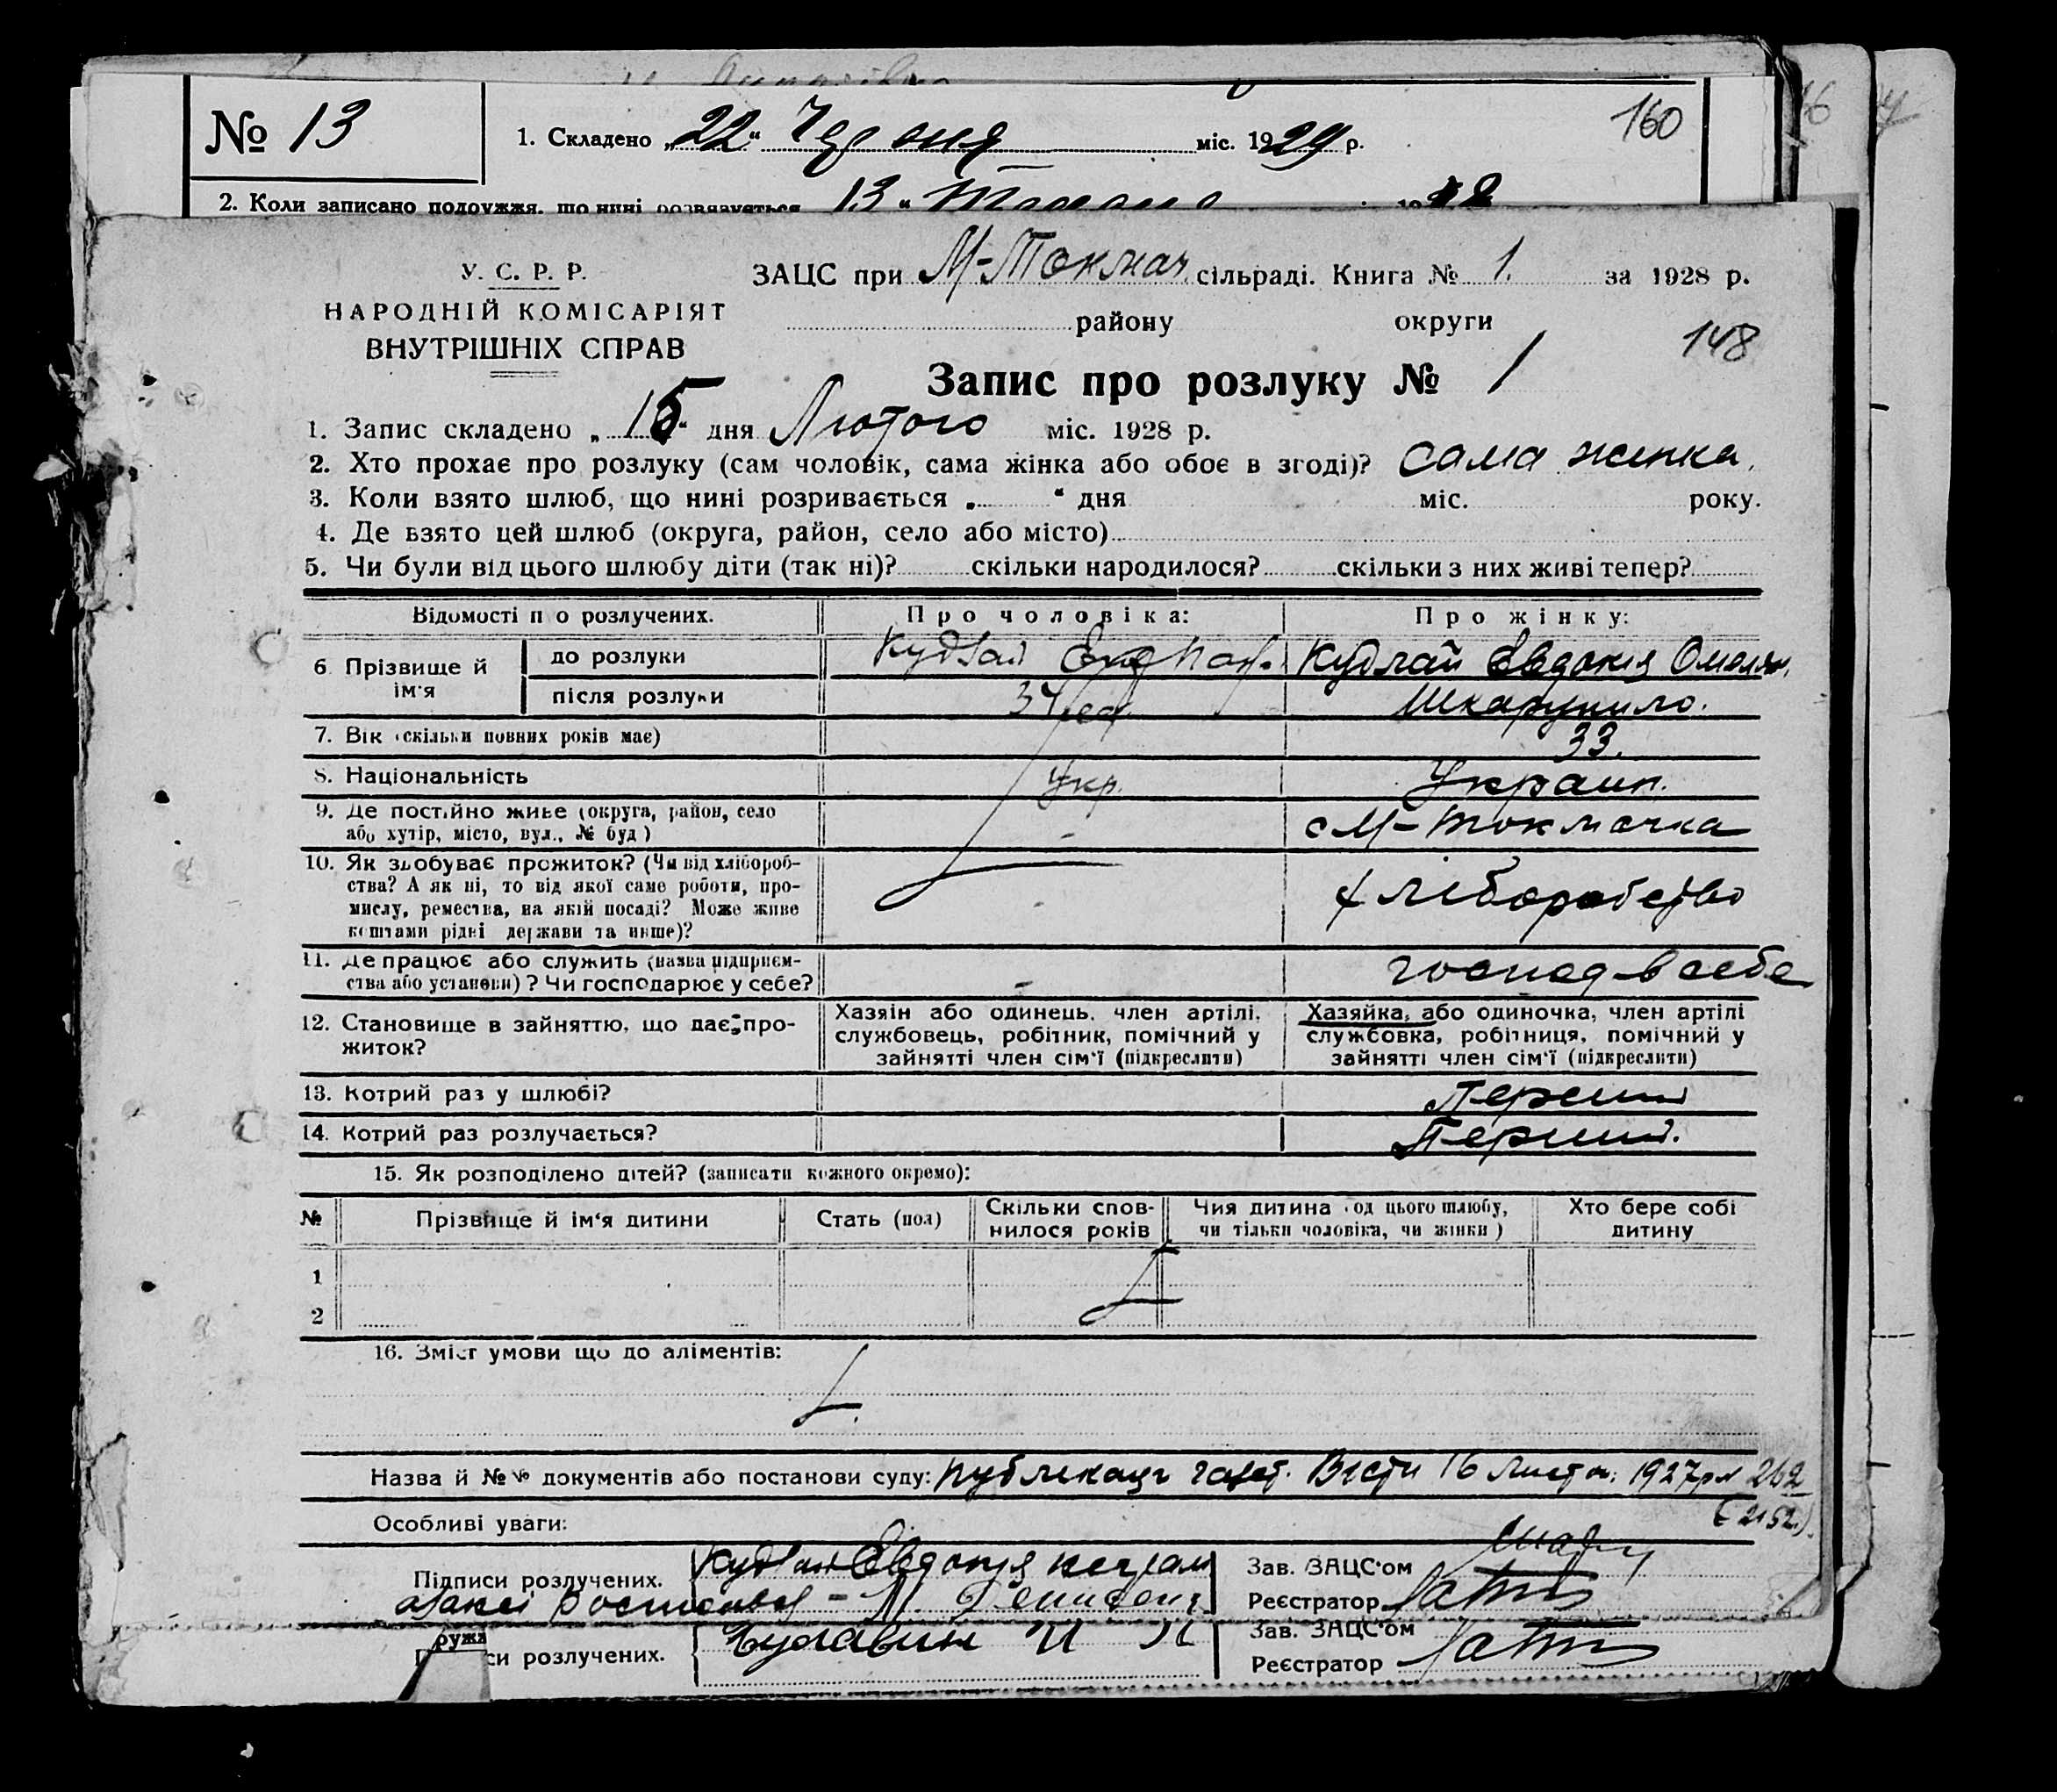 № 13
1. Складено „22“ Червня міс. 1929 р.
160
2. Коли записано подружжя, що нині розвязується 13 “
У. С. Р. Р.
НАРОДНІЙ КОМІСАРІЯТ
ВНУТРІШНІХ СПРАВ
ЗАЦС при М-Токмач. сільраді. Книга № 1. за 1928 р.
району округи
148
Запис про розлуку № 1
1. Запис складено „15“ дня Лютого міс. 1928 р.
2. Хто прохає про розлуку (сам чоловік, сама жінка або обоє в згоді)? сама жинка.
3. Коли взято шлюб, що нині розривається „ “ дня міс. року.
4. Де взято цей шлюб (округа, район, село або місто)
5. Чи були від цього шлюбу діти (так ні)? скільки народилося? скільки з них живі тепер?
Відомості по розлучених. Про чоловіка: Про жінку:
6. Прізвище й ім'я
до розлуки Кудлай Кудлай Евдокия Омелян.
після розлуки Шкарупило.
7. Вік (скільки повних років має) 33.
8. Національність Укр. Украин.
9. Де постійно живе (округа, район, село
або хутір, місто, вул., № буд) - с М-Токмачка
10. Як здобуває прожиток? (Чи від хлібороб-
ства? А як ні, то від якої саме роботи, про-
мислу, ремества, на якій посаді? Може живе
коштами рідні держави та инше)? - хліборобство
11. Де працює або служить (назва підприєм-
ства або установи)? Чи господарює у себе? - господ-в себе
12. Становище в зайняттю, що дає про-
житок?
Хазяїн або одинець, член артілі,
службовець, робітник, помічний у
зайнятті член сім'ї (підкреслити)
Хазяйка, або одиночка, член артілі
службовка, робітниця, помічний у
зайнятті член сім'ї (підкреслити)
13. Котрий раз у шлюбі? Перший
14. Котрий раз розлучається? Перший.
15. Як розподілено дітей? (записати кожного окремо):
№ Прізвище й ім'я дитини Стать (пол) Скільки спов-нилося років Чия дитина (од цього шлюбу, чи тільки чоловіка, чи жінки) Хто бере собі дитину
1
2
16. Зміст умови що до аліментів:
Назва й №№ документів або постанови суду: публикация газет. Вісти 16 Листоп. 1927р № 262
(2152.)
Особливі уваги:
Підписи розлучених. Кудлай Евдокия неграм
Зав. ЗАЦС'ом
Реєстратор
Зав. ЗАЦС'ом
си розлучених.
Реєстратор